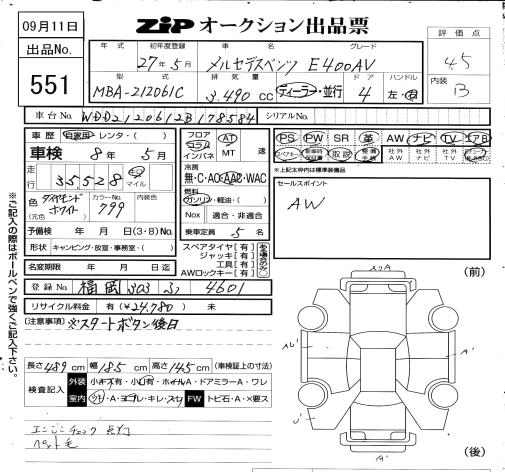 09月11日
ZIP オークション出品票
出品No.
551
評価点
4.5
内装
B
年式 初年度登録 車名 グレード
27年5月 メルセデスベンツ E400AV
型式 排気量 ドア ハンドル
MBA-212061C 3,490 cc ディーラー・並行 4 左・右
車台No. WDD2120612B178584 シリアルNo.
車歴 自家用 レンタ・( )
車検 8年5月
走行 35,528 km マイル
色(元色) ダイヤモンドホワイト カラーNo. 799 内装色
予備検 年 月 日(3・8)No.
形状 キャンピング・放宣・事務室・( )
名変期限 年 月 日迄
フロア コラム インパネ AT MT 速
冷房
無・C・AC・AAC・WAC
燃料
ガソリン・軽油・( )
Nox 適合・非適合
乗車定員 5 名
スペアタイヤ(有)
ジャッキ(有)
工具(有)
AWロックキー(有)
PS PW SR 革 AW ナビ TV エアB
取説
社外AW 社外ナビ 社外TV
※上記太枠内は標準装備品
セールスポイント
AW
登録No. 福岡 303 4601
リサイクル料金 有(¥24,780) 未
(注意事項) ※スタートボタン後日
長さ 489 cm 幅 185 cm 高さ 145 cm (車検証上の寸法)
検査記入 外装 小キズ有・小凹有・ホイールA・ドアミラーA・ワレ
室内 FW トビ石・A・×要ス
エンジンチェック点灯
ペット毛
※ご記入の際はボールペンで強くご記入下さい。
(前)
(後)